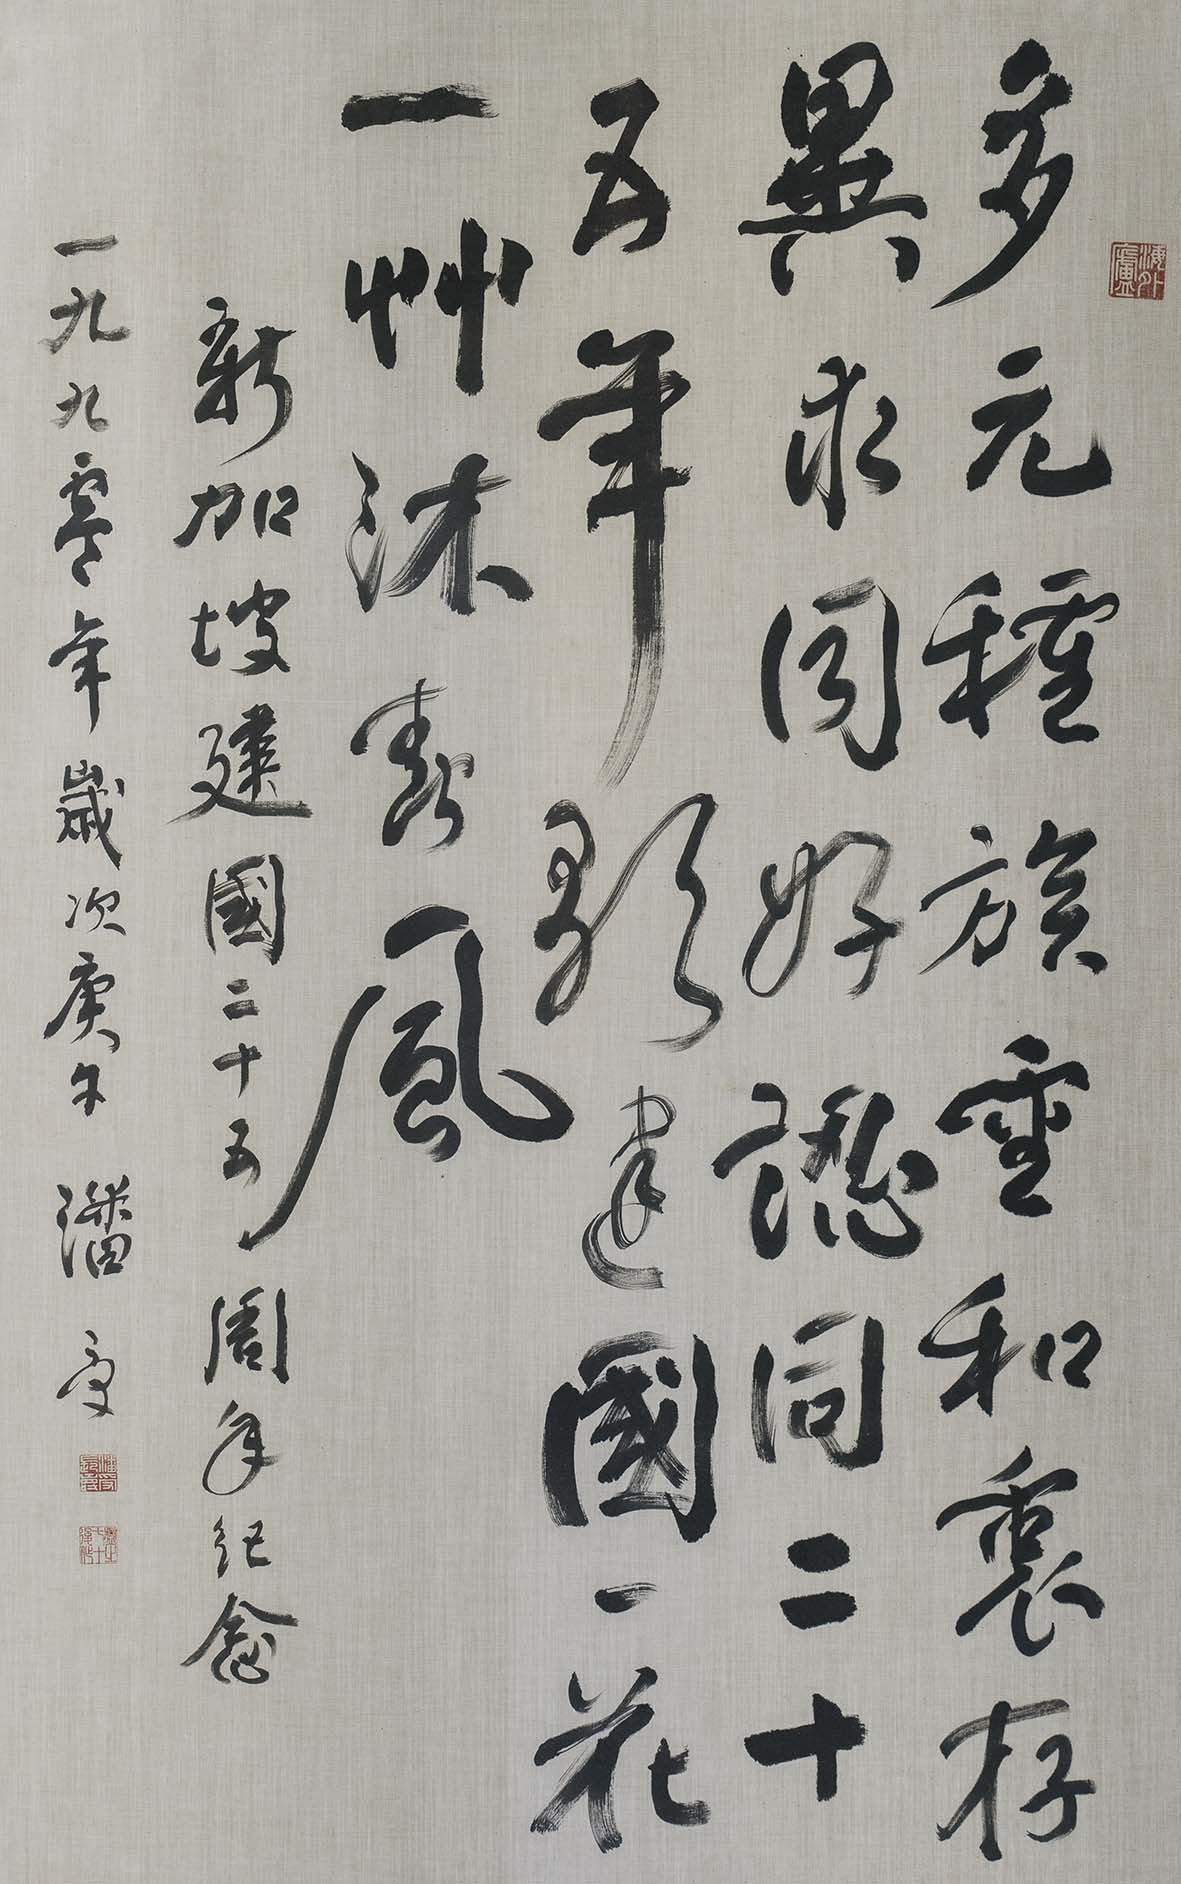 海外廬
多元種族重和衷存
異求同好認同二十
五年歌建國一花
一艸沐春風
新加坡建國二十五周年紀念
一九九零年歲次庚午 潘受